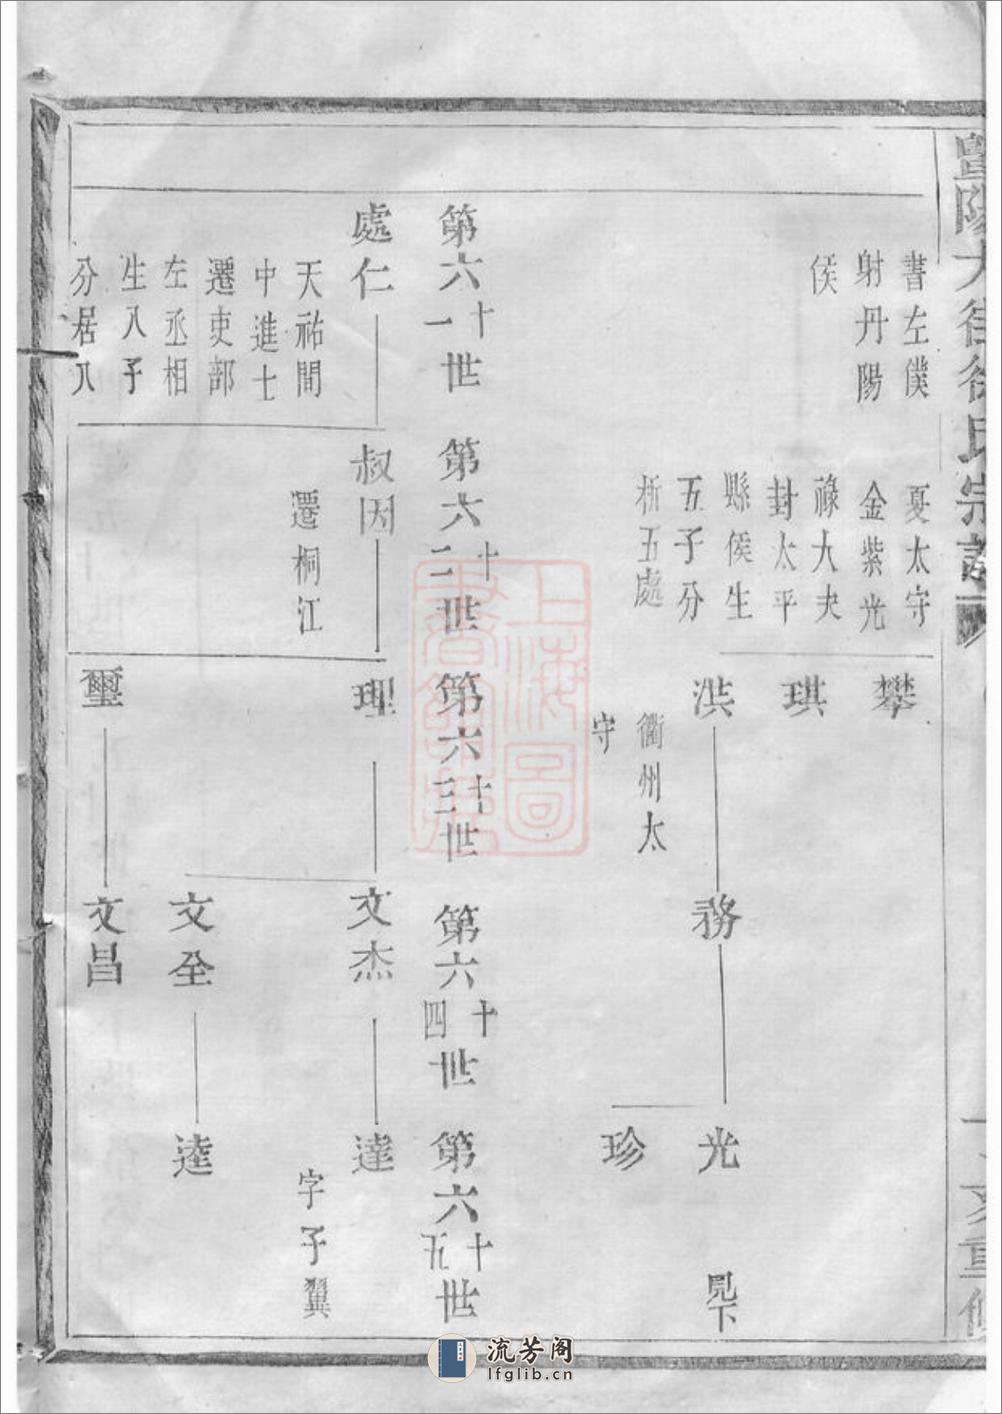 暨陽大街徐氏宗譜
丁亥重修
書左僕
射丹陽
侯
夏太守
金紫光
祿大夫
封太平
縣侯生
五子分
析五處
攀
琪
洪
衢州太
守
務
光
見下
珍
第六十一世
第六十二世
第六十三世
第六十四世
第六十五世
處仁
天祐間
中進士
遷吏部
左丞相
生八子
分居八
叔因
遷桐江
理
璽
文杰
文全
文昌
達
字子翼
逵
上海圖
書館藏
流芳阁
lfglib.cn